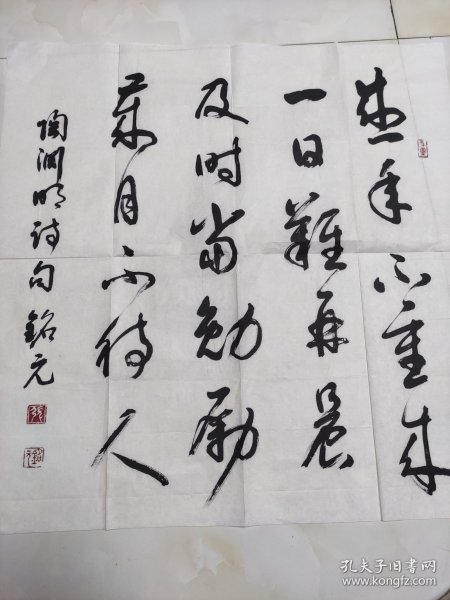 盛年不重来
一日难再晨
及时当勉励
岁月不待人
陶渊明诗句 铭元
孔夫子旧书网
www.kongfz.com